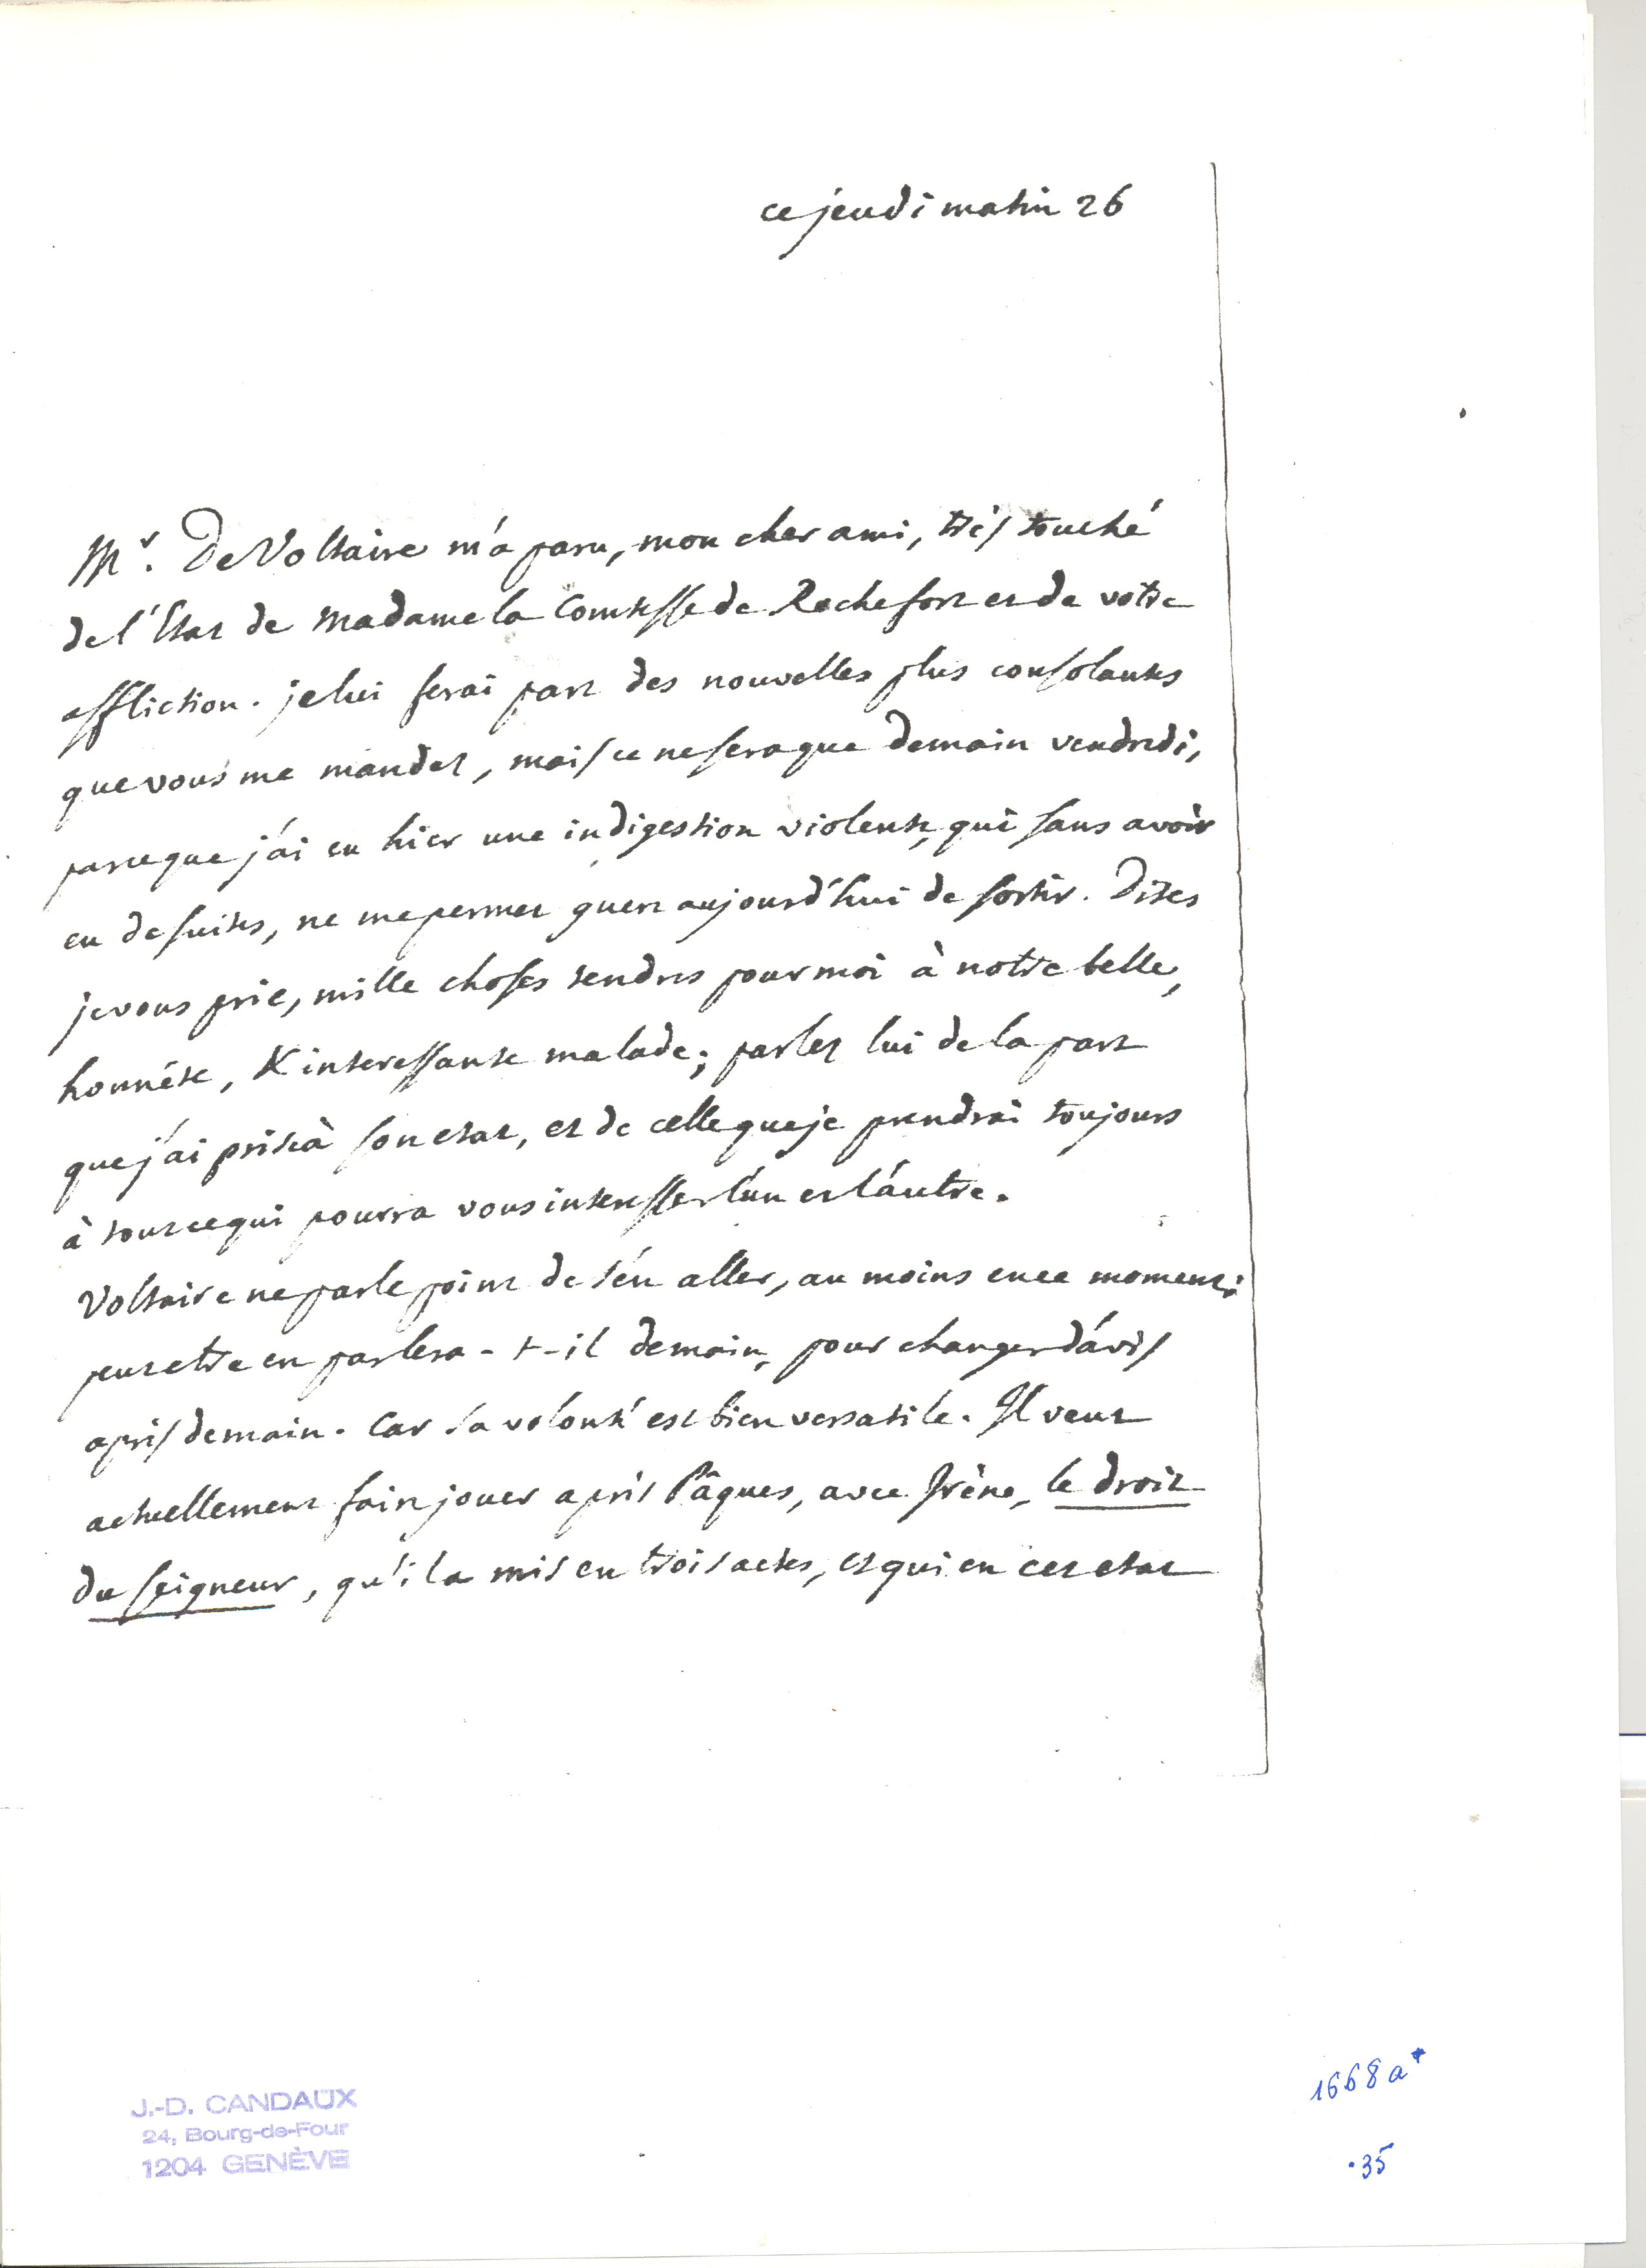 ce jeudi matin 26
Mr. De Voltaire m'a paru, mon cher ami, très touché
de l'Etat de Madame la Comtesse de Rochefort et de votre
affliction. je lui ferai part des nouvelles plus consolantes
que vous me mandez, mais ce ne sera que demain vendredi,
parceque j'ai eu hier une indigestion violente, qui sans avoir
eu de suites, ne me permet guere aujourd'hui de sortir. Dites
je vous prie, mille choses tendres pour moi à notre belle,
honnête, & interessante malade; parlez lui de la part
que j'ai prise à son etat, et de celle que je prendrai toujours
à tout ce qui pourra vous interesser l'un et l'autre.
Voltaire ne parle point de s'en aller, au moins en ce moment;
peut etre en parlera-t-il demain, pour changer d'avis
après demain. Car sa volonté est bien versatile. Il veut
actuellement faire jouer après Pâques, avec Irène, le droit
du seigneur, qu'il a mis en trois actes, et qui en cet etat
J.-D. CANDAUX
24, Bourg-de-Four
1204 GENÈVE
1668 a*
.35